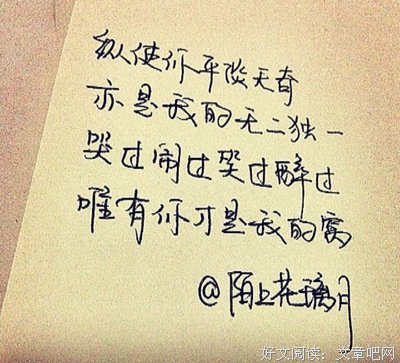 纵使你平淡无奇
亦是我的无二独一
哭过闹过笑过醉过
唯有你才是我的窝
@陌上花璃月
好文阅读：文章吧网